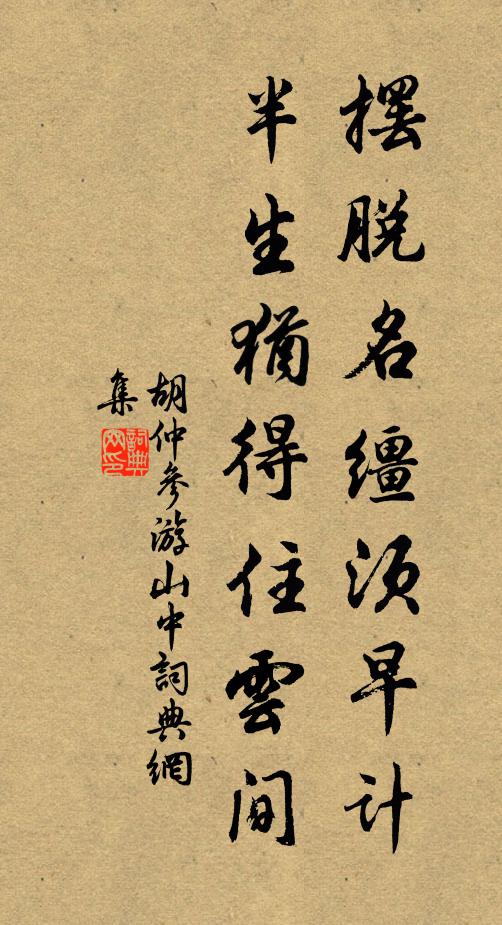 摆脱名缰须早计
半生犹得住雲间
胡仲参游山中詞典網
集
詞典
网印